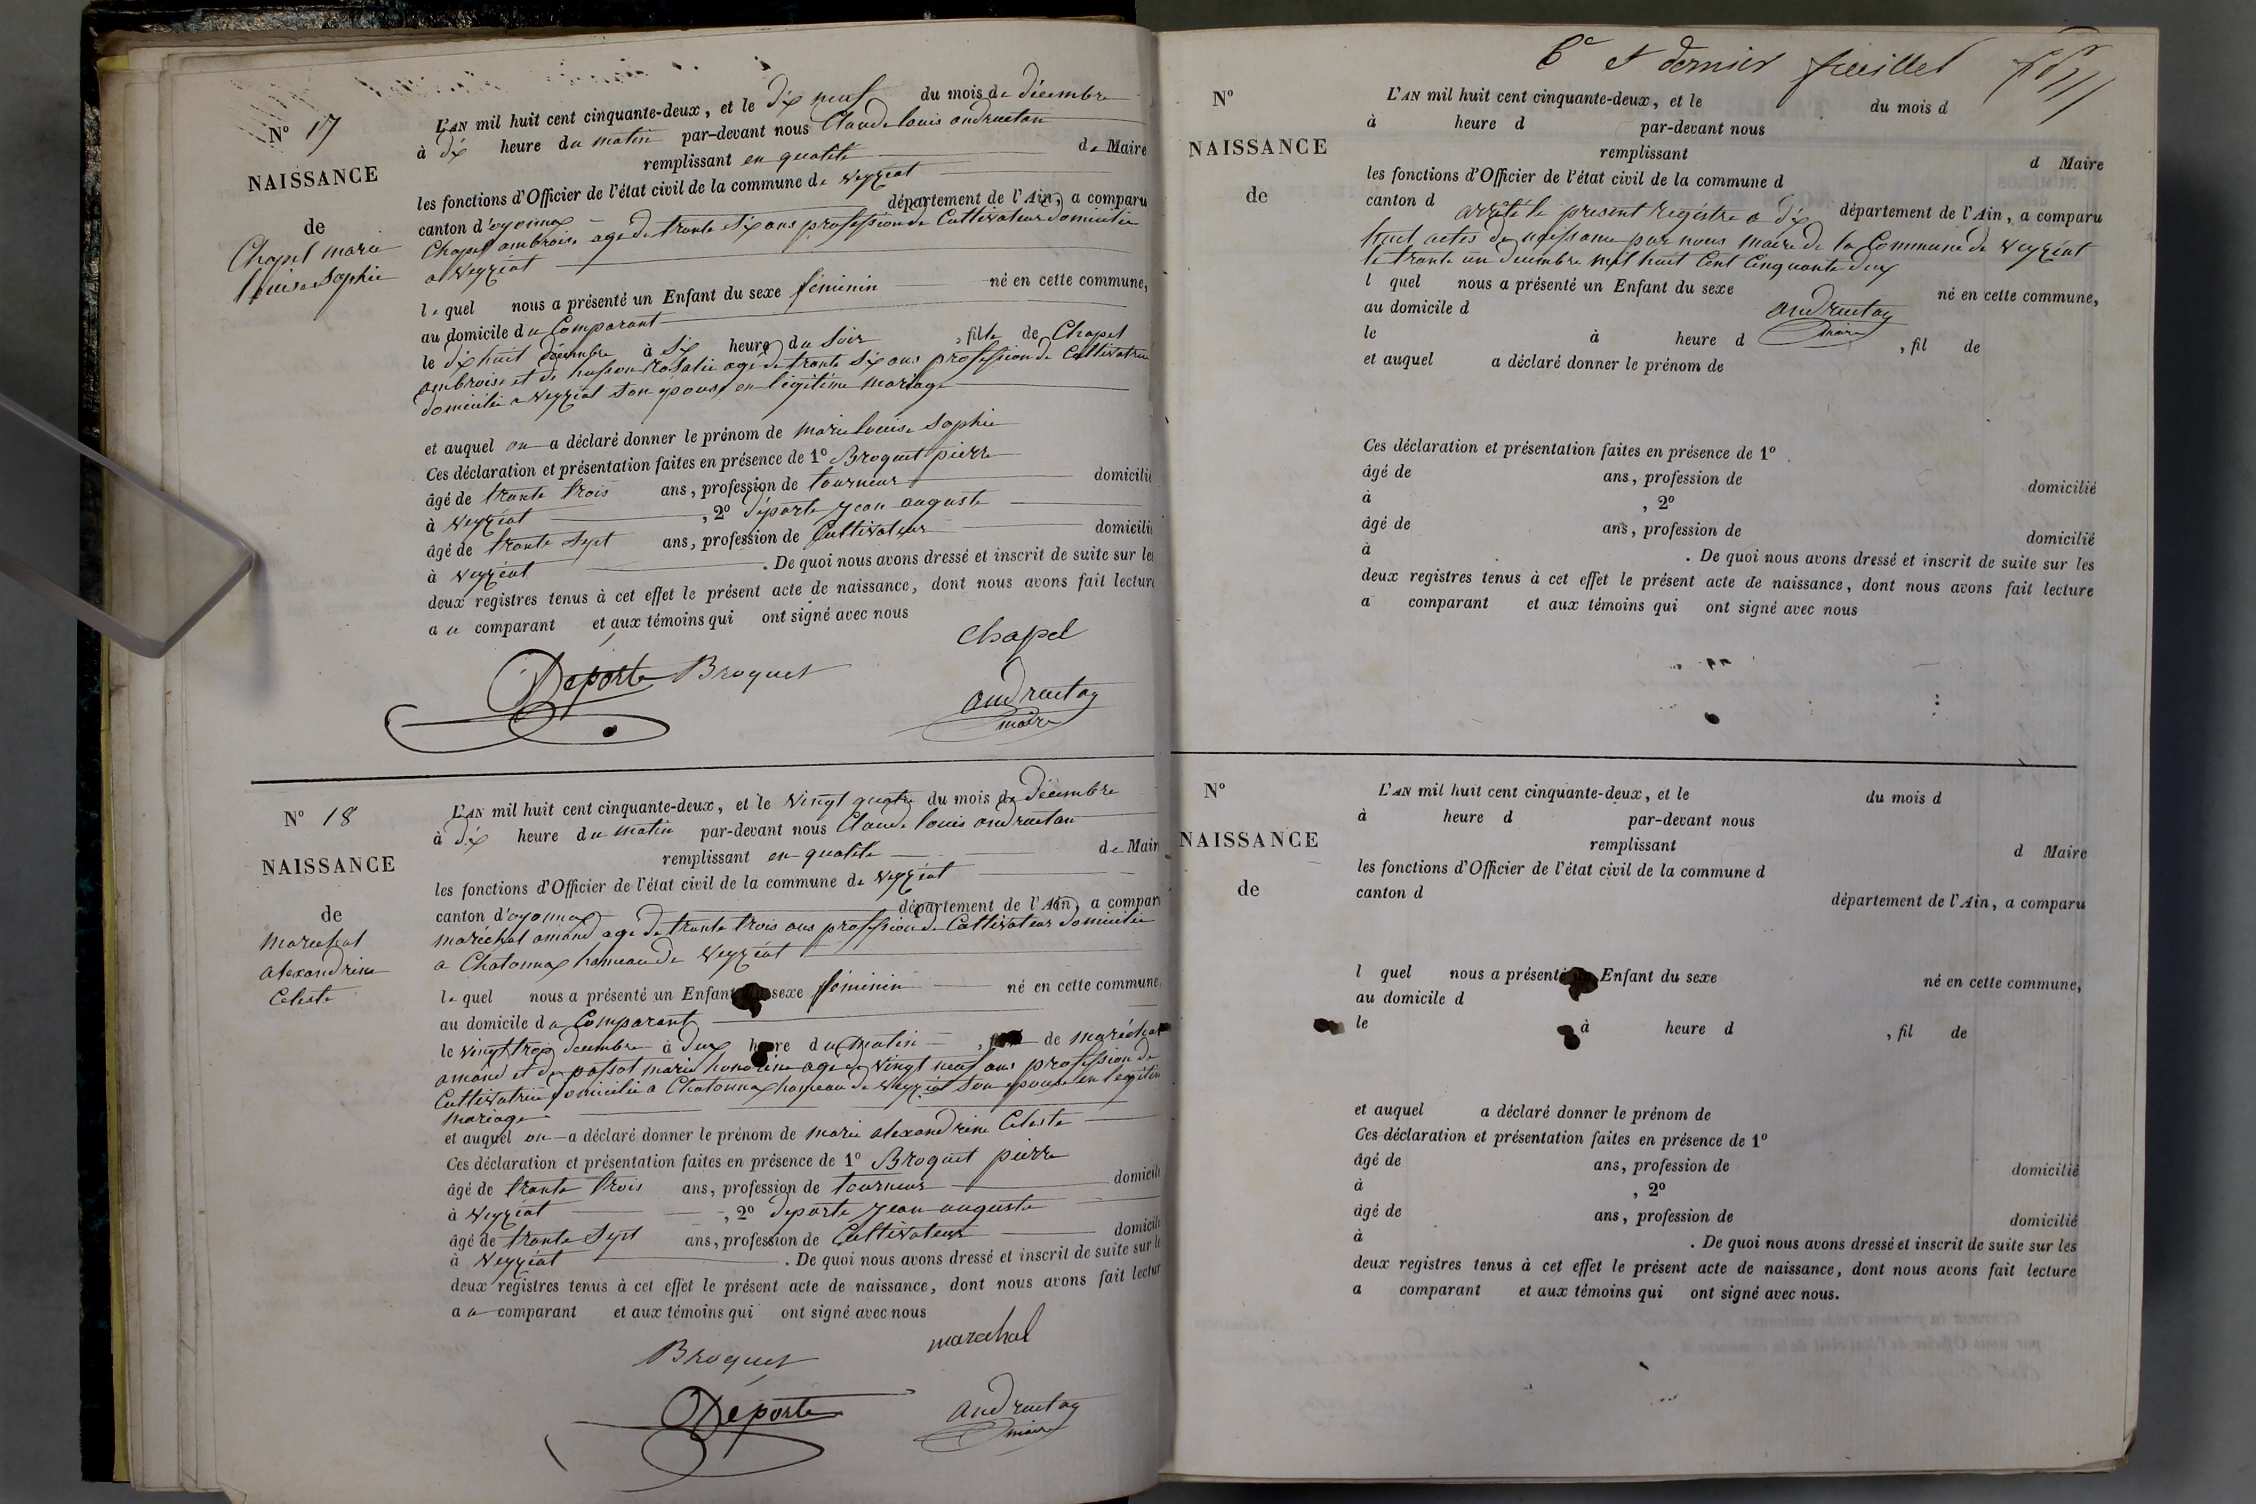 N° 17
NAISSANCE
de
Chapel marie
louise Sophie
L'AN mil huit cent cinquante-deux, et le dix neuf du mois de décembre
à dix heure du matin par-devant nous Claude louis andruetan
remplissant en qualité de Maire
les fonctions d'Officier de l'état civil de la commune de Veyziat
canton d'oyonnax département de l'Ain, a comparu
Chapel ambroise age de trente six ans profession de Cultivateur domicilié
a Veyziat
le quel nous a présenté un Enfant du sexe féminin né en cette commune,
au domicile du Comparant
le dix huit décembre à six heure du Soir , fille de Chapel
ambroise et de husson rosalie agé de trente six ans profession de Cultivatrice
domicilié a Veyziat son epouse en légitime mariage
et auquel on a déclaré donner le prénom de marie louise Sophie
Ces déclaration et présentation faites en présence de 1° Broquet pierre
âgé de trente trois ans, profession de tourneur domicilié
à Veyziat , 2° déporte jean auguste
âgé de trente sept ans, profession de Cultivateur domicilié
à Veyziat . De quoi nous avons dressé et inscrit de suite sur les
deux registres tenus à cet effet le présent acte de naissance, dont nous avons fait lecture
a u comparant et aux témoins qui ont signé avec nous
Chapel
Déporte Broquet
andruetan
maire
N° 18
NAISSANCE
de
Marechal
alexandrine
Celeste
L'AN mil huit cent cinquante-deux, et le Vingt quatre du mois de décembre
à dix heure du matin par-devant nous Claude louis andruetan
remplissant en qualité de Maire
les fonctions d'Officier de l'état civil de la commune de Veyziat
canton d'oyonnax département de l'Ain, a comparu
maréchal amand age de trente trois ans profession de Cultivateur domicilié
a Chatonnax hameau de Veyziat
le quel nous a présenté un Enfant du sexe féminin né en cette commune,
au domicile du Comparant
le vingt trois décembre à deux heure du matin , de maréchal
amand et de passot marie honorine age de Vingt neuf ans profession de
Cultivatrice domicilié a Chatonnax hameau de Veyziat son epouse en legitime
mariage
et auquel on a déclaré donner le prénom de marie alexandrine Celeste
Ces déclaration et présentation faites en présence de 1° Broquet pierre
âgé de trente trois ans, profession de tourneur domicilié
à Veyziat , 2° deporte jean auguste
âgé de trente sept ans, profession de Cultivateur domicilié
à Veyziat . De quoi nous avons dressé et inscrit de suite sur les
deux registres tenus à cet effet le présent acte de naissance, dont nous avons fait lecture
a u comparant et aux témoins qui ont signé avec nous
Broquet marechal
Déporte andruetan
maire
6e et dernier feuillet
N°
NAISSANCE
de
L'AN mil huit cent cinquante-deux, et le du mois d
à heure d par-devant nous
remplissant d Maire
les fonctions d'Officier de l'état civil de la commune d
canton d département de l'Ain, a comparu
arrêté le present registre a dix
huit actes de naissance par nous maire de la Commune de Veyziat
le trente un decembre mil huit Cent Cinquante deux
l quel nous a présenté un Enfant du sexe né en cette commune,
au domicile d
andruetan
maire
le à heure d , fil de
et auquel a déclaré donner le prénom de
Ces déclaration et présentation faites en présence de 1°
âgé de ans, profession de domicilié
à , 2°
âgé de ans, profession de domicilié
à . De quoi nous avons dressé et inscrit de suite sur les
deux registres tenus à cet effet le présent acte de naissance, dont nous avons fait lecture
a comparant et aux témoins qui ont signé avec nous
N°
NAISSANCE
de
L'AN mil huit cent cinquante-deux, et le du mois d
à heure d par-devant nous
remplissant d Maire
les fonctions d'Officier de l'état civil de la commune d
canton d département de l'Ain, a comparu
l quel nous a présenté un Enfant du sexe né en cette commune,
au domicile d
le à heure d , fil de
et auquel a déclaré donner le prénom de
Ces déclaration et présentation faites en présence de 1°
âgé de ans, profession de domicilié
à , 2°
âgé de ans, profession de domicilié
à . De quoi nous avons dressé et inscrit de suite sur les
deux registres tenus à cet effet le présent acte de naissance, dont nous avons fait lecture
a comparant et aux témoins qui ont signé avec nous.